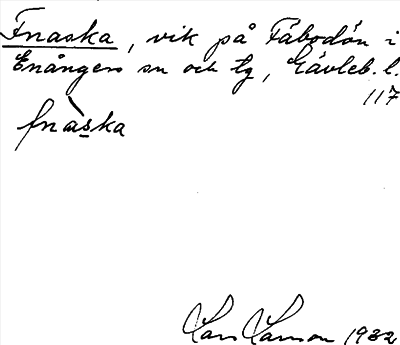 Fnaska, vik på Fäbodön i
Enångers sn och tg, Gävleb. l.
117
fnàska
Lars Larsson 1932